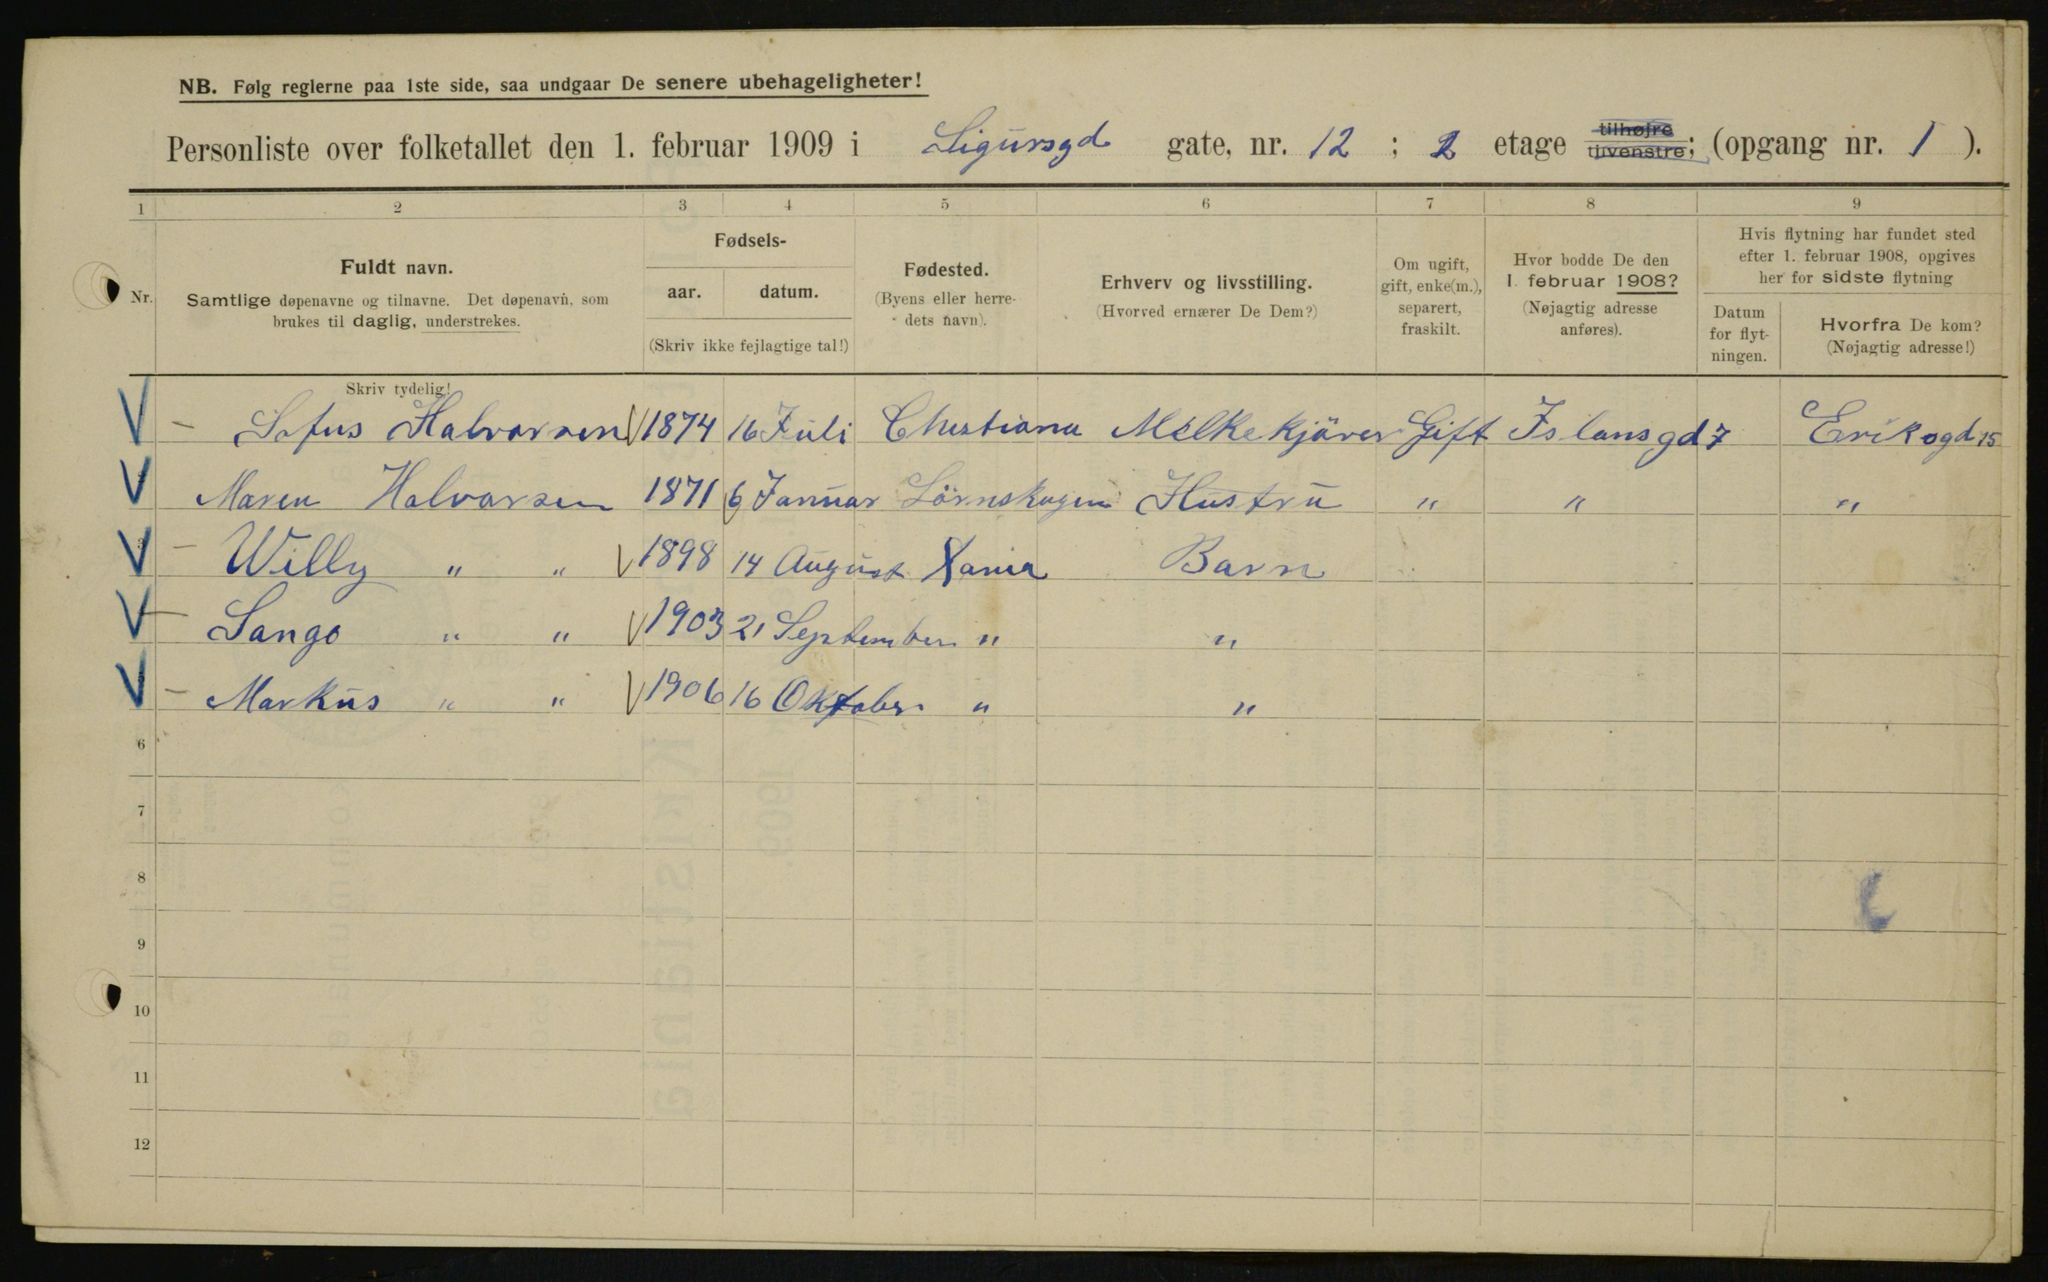 NB. Følg reglerne paa 1ste side, saa undgaar De senere ubehageligheter!
Personliste over folketallet den 1. februar 1909 i Sigursgd gate, nr. 12 ; 2 etage tilhøjre tilvenstre; (opgang nr. 1 ).
1 2 3 4 5 6 7 8 9
Nr.
Fuldt navn.
Samtlige døpenavne og tilnavne. Det døpenavn, som
brukes til daglig, understrekes.
Skriv tydelig!
Fødsels-
aar. datum.
(Skriv ikke fejlagtige tal!)
Fødested.
(Byens eller herre-
dets navn).
Erhverv og livsstilling.
(Hvorved ernærer De Dem?)
Om ugift,
gift, enke(m.),
separert,
fraskilt.
Hvor bodde De den
1. februar 1908?
(Nøjagtig adresse
anføres).
Hvis flytning har fundet sted
efter 1. februar 1908, opgives
her for sidste flytning
Datum
for flyt-
ningen.
Hvorfra De kom?
(Nøjagtig adresse!)
Sofus Halvorsen 1874 16 Juli Chestiana Melkekjörer Gift Islansgd 7 Eriksgd 15
Maren Halvorsen 1871 6 Januar Lörnskogen Hustru " " "
Willy " " 1898 14 August Xania Barn
Sango " " 1903 21 September " "
Markus " " 1906 16 Oktober " "
6
7
8
9
10
11
12